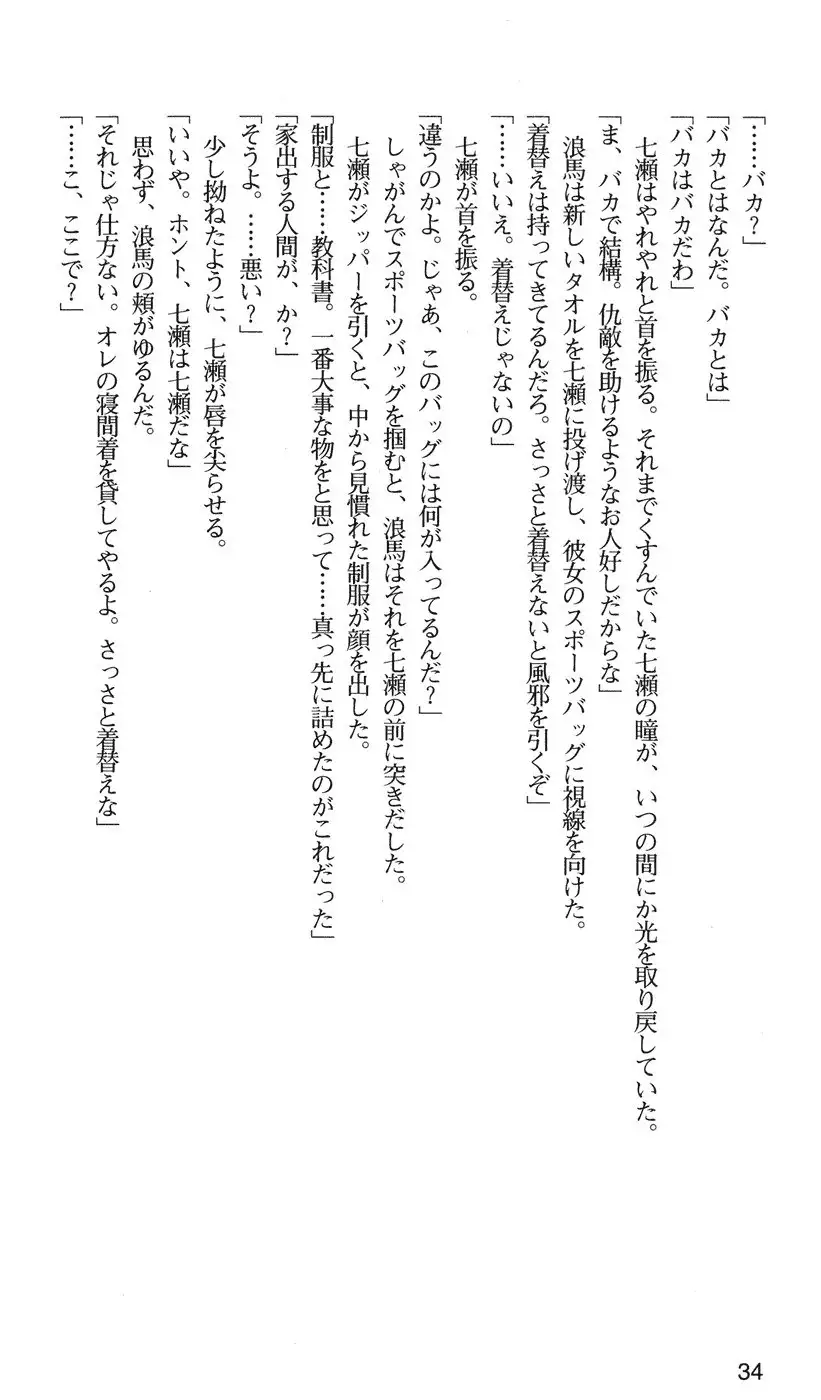 「……バカ？」
「バカとはなんだ。バカとは」
「バカはバカだわ」
七瀬はやれやれと首を振る。それまでくすんでいた七瀬の瞳が、いつの間にか光を取り戻していた。
「ま、バカで結構。仇敵を助けるようなお人好しだからな」
浪馬は新しいタオルを七瀬に投げ渡し、彼女のスポーツバッグに視線を向けた。
「着替えは持ってきてるんだろ。さっさと着替えないと風邪を引くぞ」
「……いいえ。着替えじゃないの」
七瀬が首を振る。
「違うのかよ。じゃあ、このバッグには何が入ってるんだ？」
しゃがんでスポーツバッグを掴むと、浪馬はそれを七瀬の前に突きだした。
七瀬がジッパーを引くと、中から見慣れた制服が顔を出した。
「制服と……教科書。一番大事な物をと思って……真っ先に詰めたのがこれだった」
「家出する人間が、か？」
「そうよ。……悪い？」
少し拗ねたように、七瀬が唇を尖らせる。
「いいや。ホント、七瀬は七瀬だな」
思わず、浪馬の頬がゆるんだ。
「それじゃ仕方ない。オレの寝間着を貸してやるよ。さっさと着替えな」
「……こ、ここで？」
34